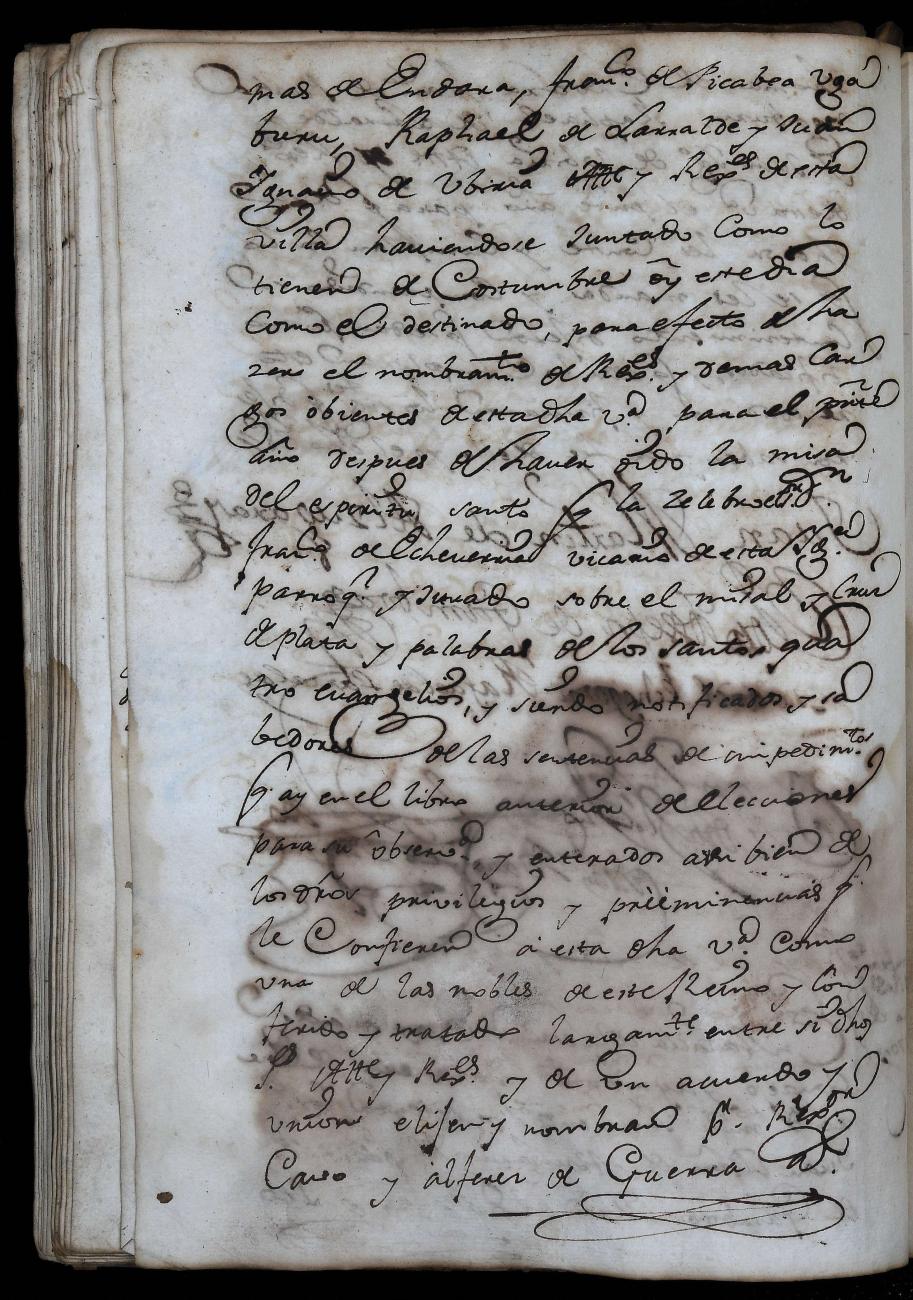 mas de Endara, franco. de Picabea Vga
buru, Raphael de Larralde y Juan
Ignacio de Vbiria Alle y Rexes de esta
villa haviendose Juntado Como lo
tienen de Costumbre oy este dia
Como el destinado, para efecto de ha
zer el nombramto. de Rexes. y demas Car
gos obientes de esta dha va para el prñte
año despues de haver oido la misa
del espiritu santo q la zelebro el sr Dn
franco de Echeverria vicario de esta Yga.
parroql y Jurado sobre el misal y Cruz
de plata y palabras de los santos qua
tro euangelios, y siendo notificados y sa
bedores de las sentencias de impedimtos.
q. ay en el libro anterior de Elecciones
para su observa. y enterados assi bien de
los dros privilegios y preeminencias q.
le Confieren a esta dha va. Como
vna de las nobles de este Reino y Con
ferido y tratado largamte. entre si dhos
Ss. Alle y Rexes. y de Un acuerdo y
vnion elijen y nombran pr. Rexor
Cavo y alferez de Guerra a